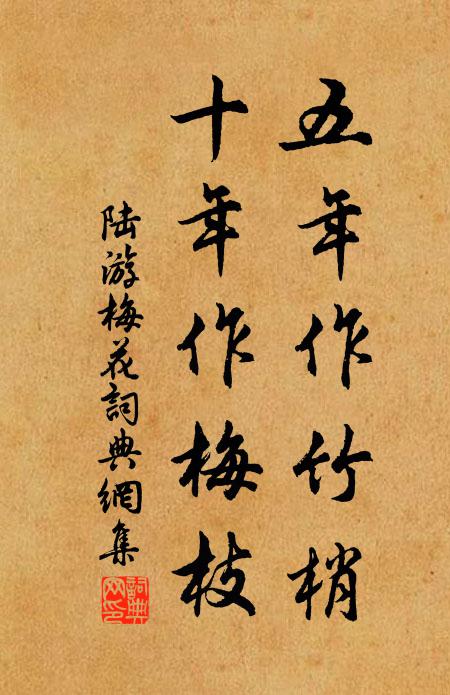 五年作竹梢
十年作梅枝
陆游梅花詞典網集
詞典网印